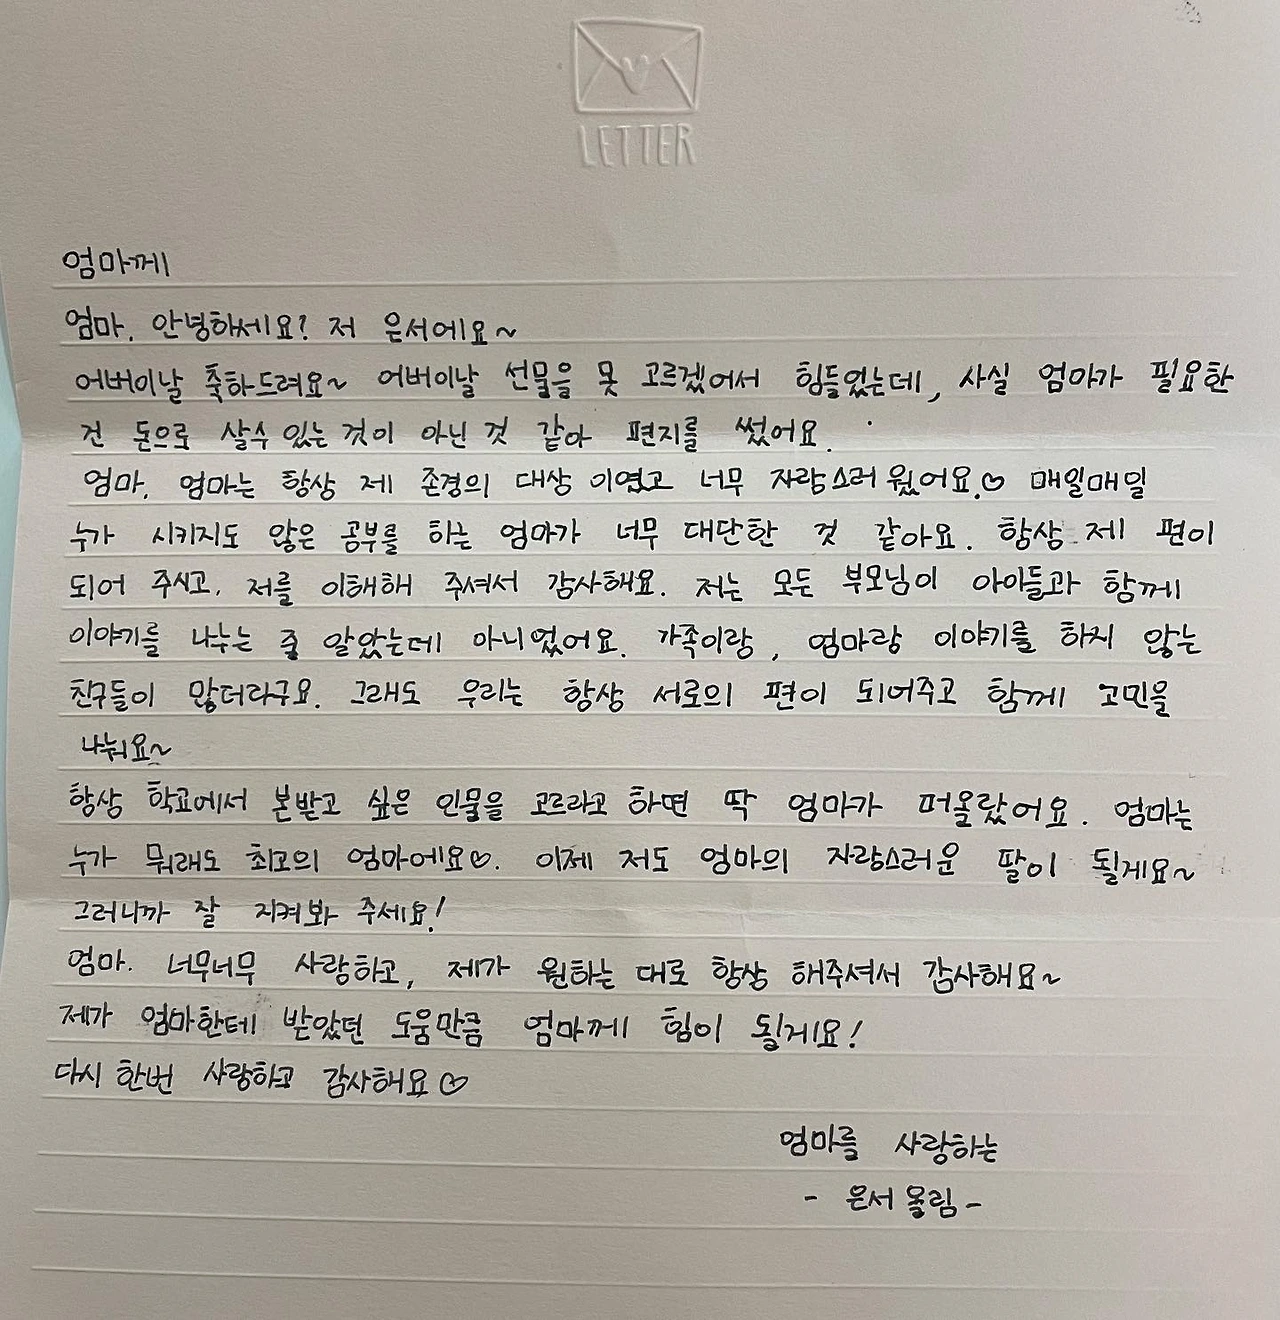 LETTER
엄마께
엄마. 안녕하세요? 저 은서에요~
어버이날 축하드려요~ 어버이날 선물을 못 고르겠어서 힘들었는데, 사실 엄마가 필요한
건 돈으로 살수 있는 것이 아닌 것 같아 편지를 썼어요.
엄마. 엄마는 항상 제 존경의 대상 이였고 너무 자랑스러 웠어요.♡ 매일매일
누가 시키지도 않은 공부를 하는 엄마가 너무 대단한 것 같아요. 항상 제 편이
되어 주시고, 저를 이해해 주셔서 감사해요. 저는 모든 부모님이 아이들과 함께
이야기를 나누는 줄 알았는데 아니었어요. 가족이랑, 엄마랑 이야기를 하지 않는
친구들이 많더라구요. 그래도 우리는 항상 서로의 편이 되어주고 함께 고민을
나눠요~
항상 학교에서 본받고 싶은 인물을 고르라고 하면 딱 엄마가 떠올랐어요. 엄마는
누가 뭐래도 최고의 엄마에요♡. 이제 저도 엄마의 자랑스러운 딸이 될게요~
그러니까 잘 지켜봐 주세요!
엄마. 너무너무 사랑하고, 제가 원하는 대로 항상 해주셔서 감사해요~
제가 엄마한테 받았던 도움만큼 엄마께 힘이 될게요!
다시 한번 사랑하고 감사해요♡
엄마를 사랑하는
- 은서 올림 -